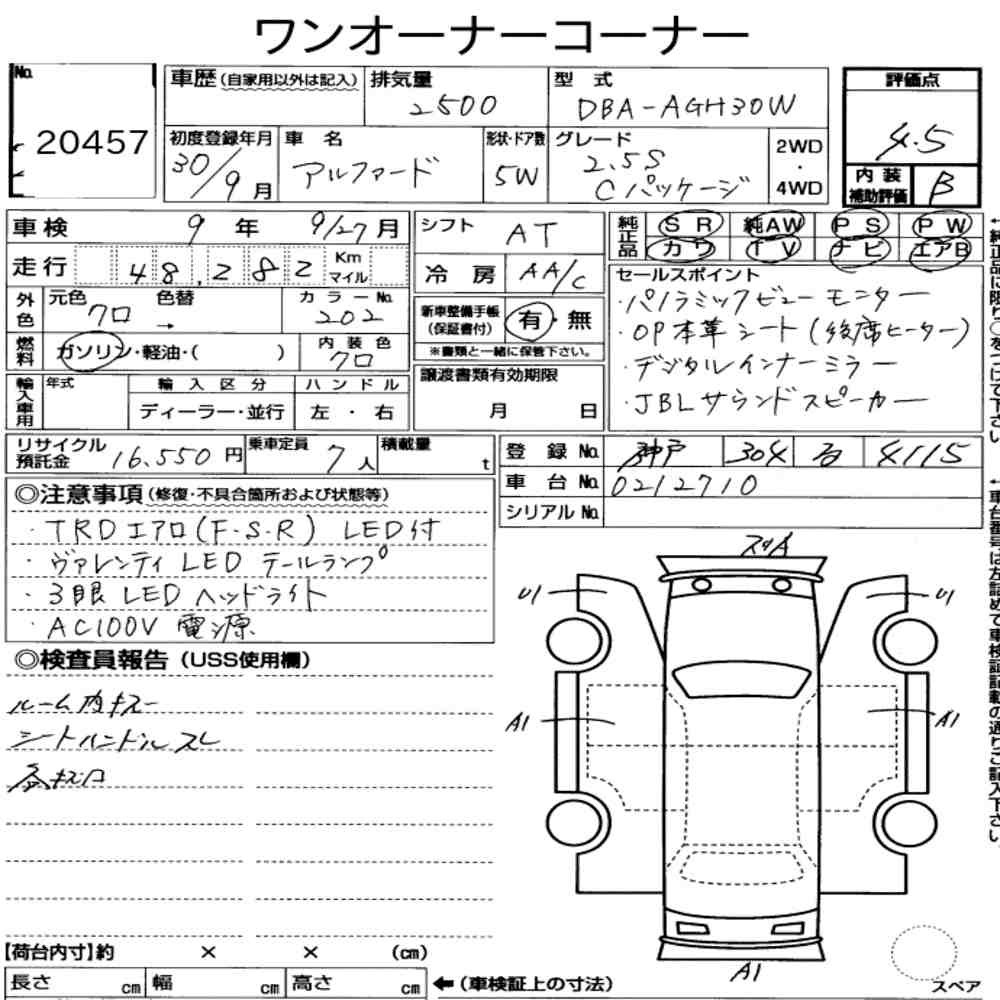 ワンオーナーコーナー
No. 20457
車歴(自家用以外は記入)
排気量 2500
型式 DBA-AGH30W
評価点 4.5
初度登録年月 30/9月
車名 アルファード
形状・ドア数 5W
グレード 2.5S Cパッケージ
2WD・4WD
内装補助評価 B
車検 9年 9/27月
シフト AT
純正品 SR 純AW PS PW
カワ TV ナビ エアB
走行 48,282 Km マイル
冷房 AA/C
セールスポイント
・パノラミックビューモニター
・OP本革シート(後席ヒーター)
・デジタルインナーミラー
・JBLサウンドスピーカー
外色 元色 クロ 色替 → カラーNo. 202
新車整備手帳(保証書付) 有・無
※書類と一緒に保管下さい。
燃料 ガソリン・軽油・( ) 内装色 クロ
譲渡書類有効期限
月 日
輸入車用 年式 輸入区分 ハンドル
ディーラー・並行 左・右
リサイクル預託金 16,550円
乗車定員 7人
積載量 t
登録No. 神戸 304 4115
車台No. 0212710
シリアルNo.
◎注意事項(修復・不具合箇所および状態等)
・TRDエアロ(F・S・R) LED付
・ヴァレンティ LED テールランプ
・3眼 LED ヘッドライト
・AC100V 電源
◎検査員報告(USS使用欄)
ルーム内キズー
シートハンドルスレ
U1 U1
A1 A1
A1
【荷台内寸】約 × × (cm)
長さ cm 幅 cm 高さ cm
←(車検証上の寸法)
スペア
←純正品に限り○をつけて下さい。
←車台番号は左詰めで車検証記載の通りご記入下さい。